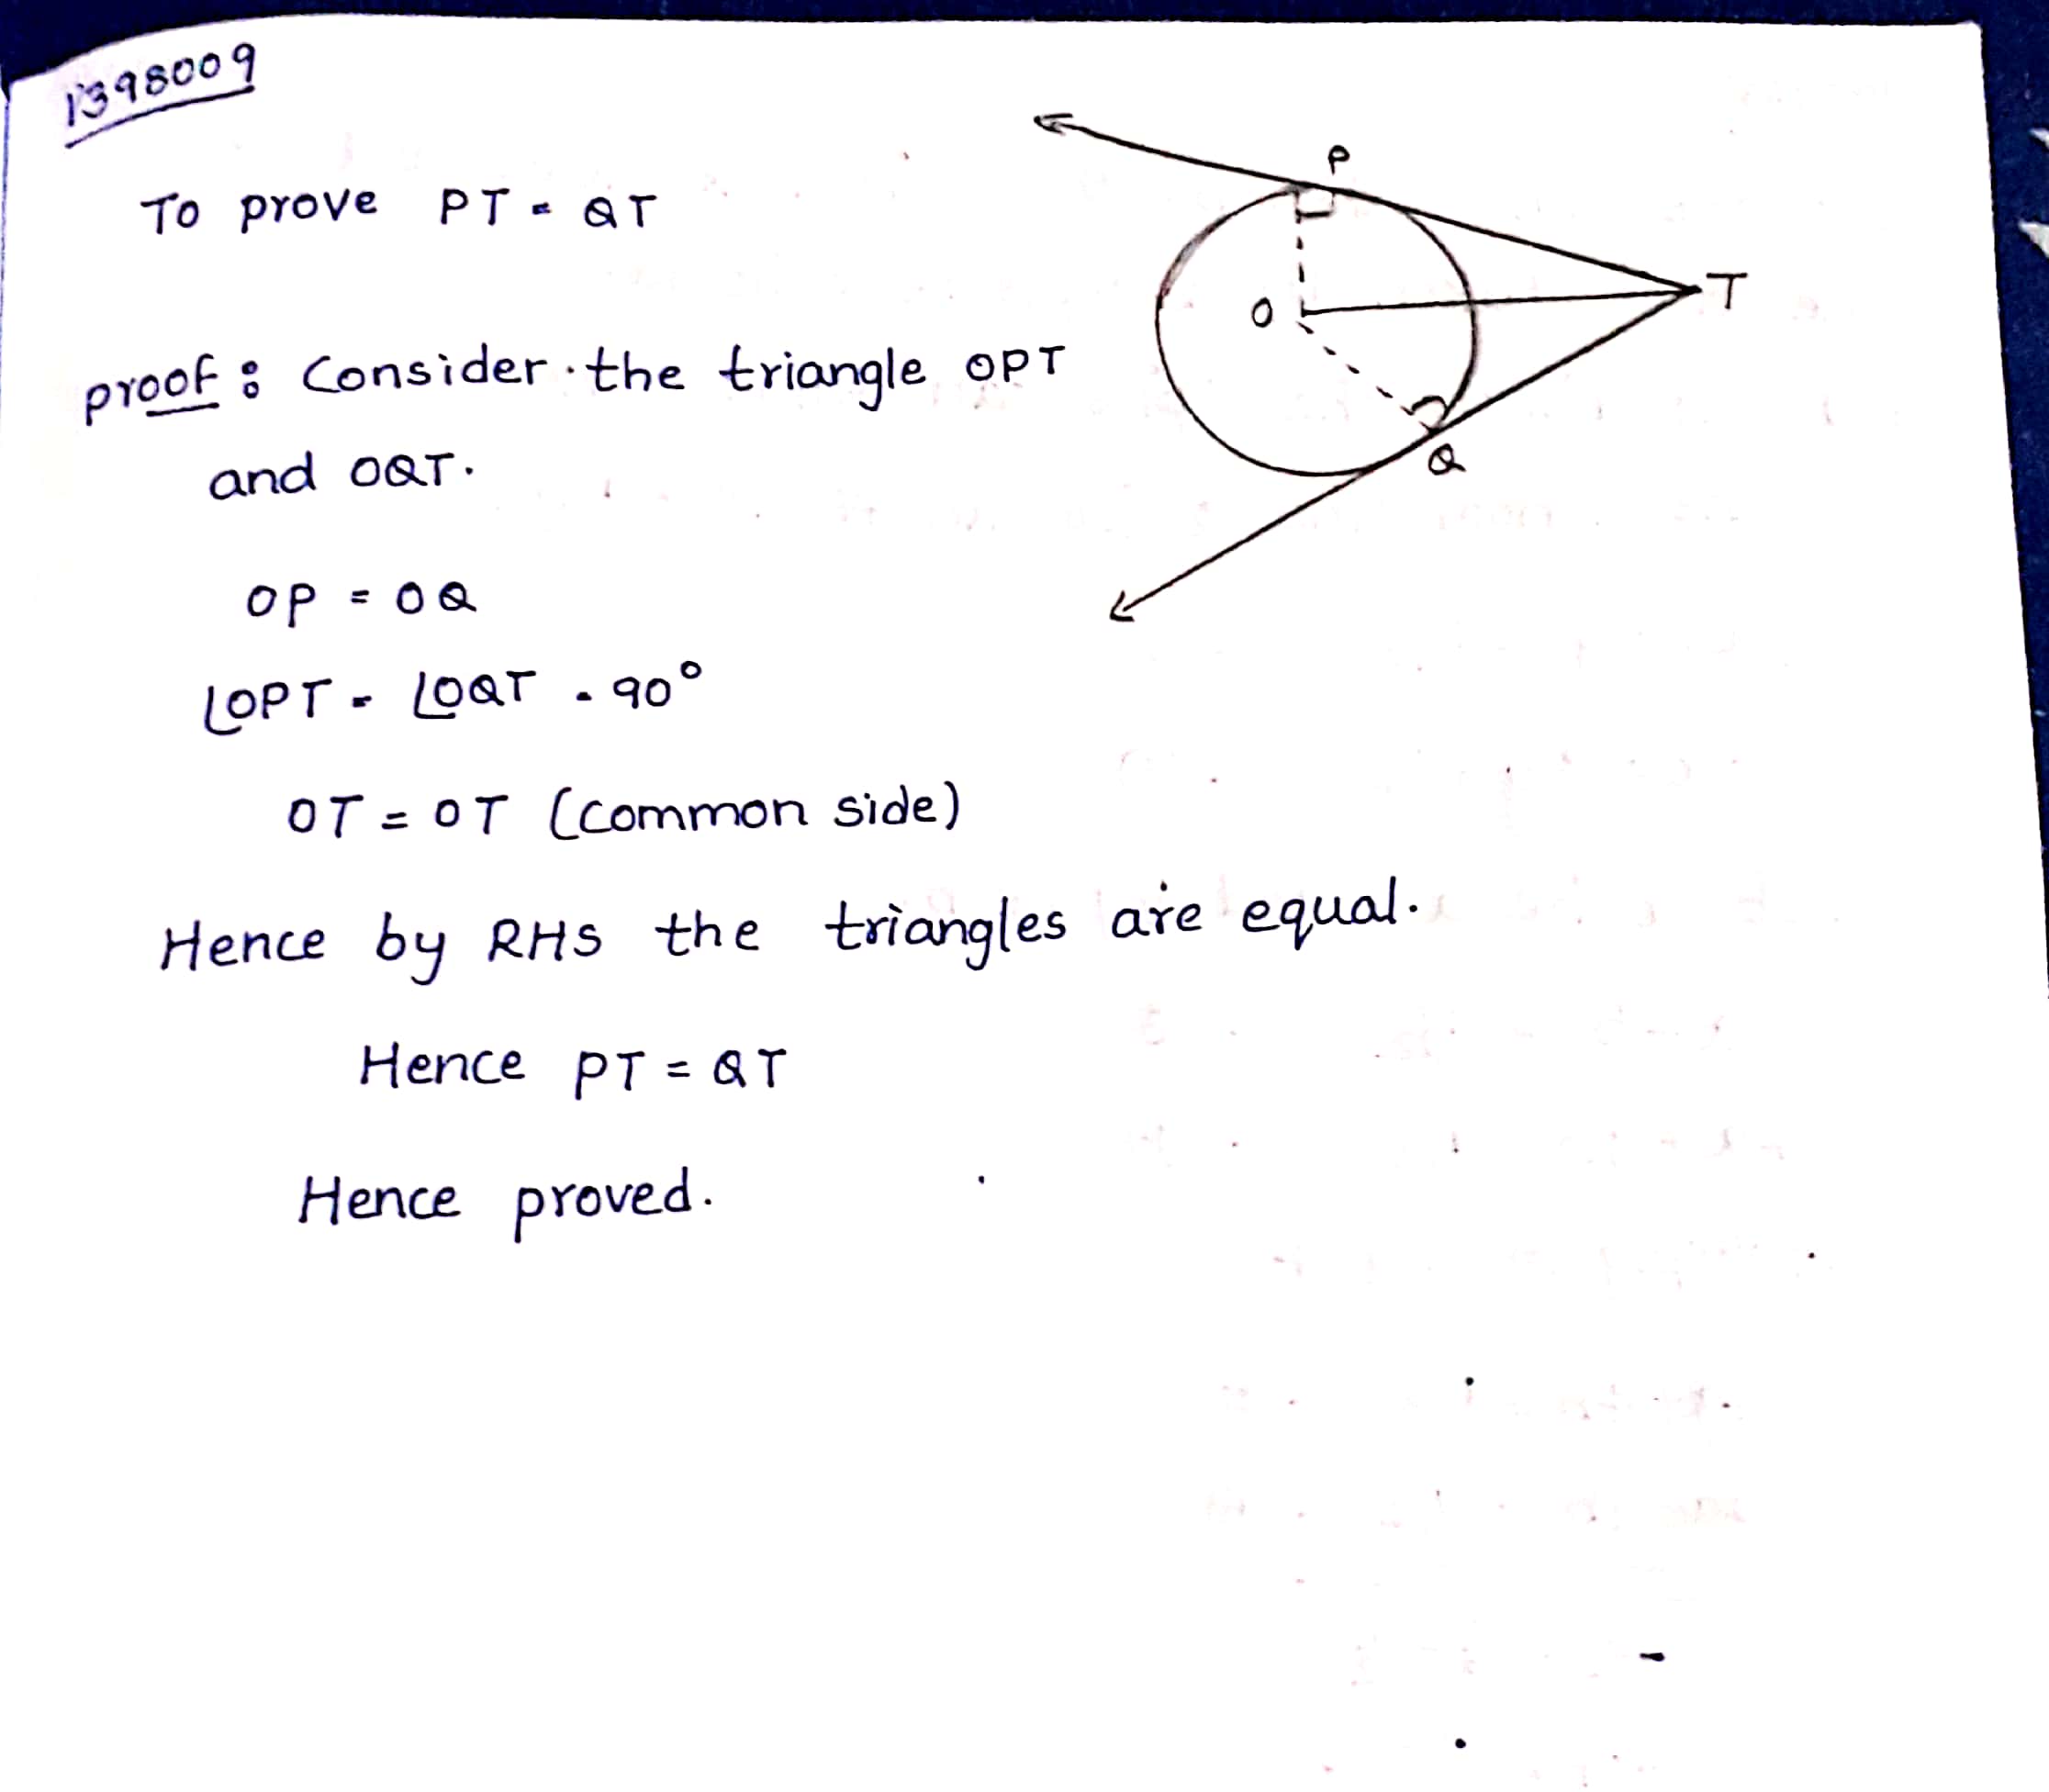 1398009
To prove PT = QT
proof : Consider the triangle OPT
and OQT.
OP = OQ
∠OPT = ∠OQT = 90°
OT = OT (common side)
Hence by RHS the triangles are equal.
Hence PT = QT
Hence proved.
P
T
O
Q